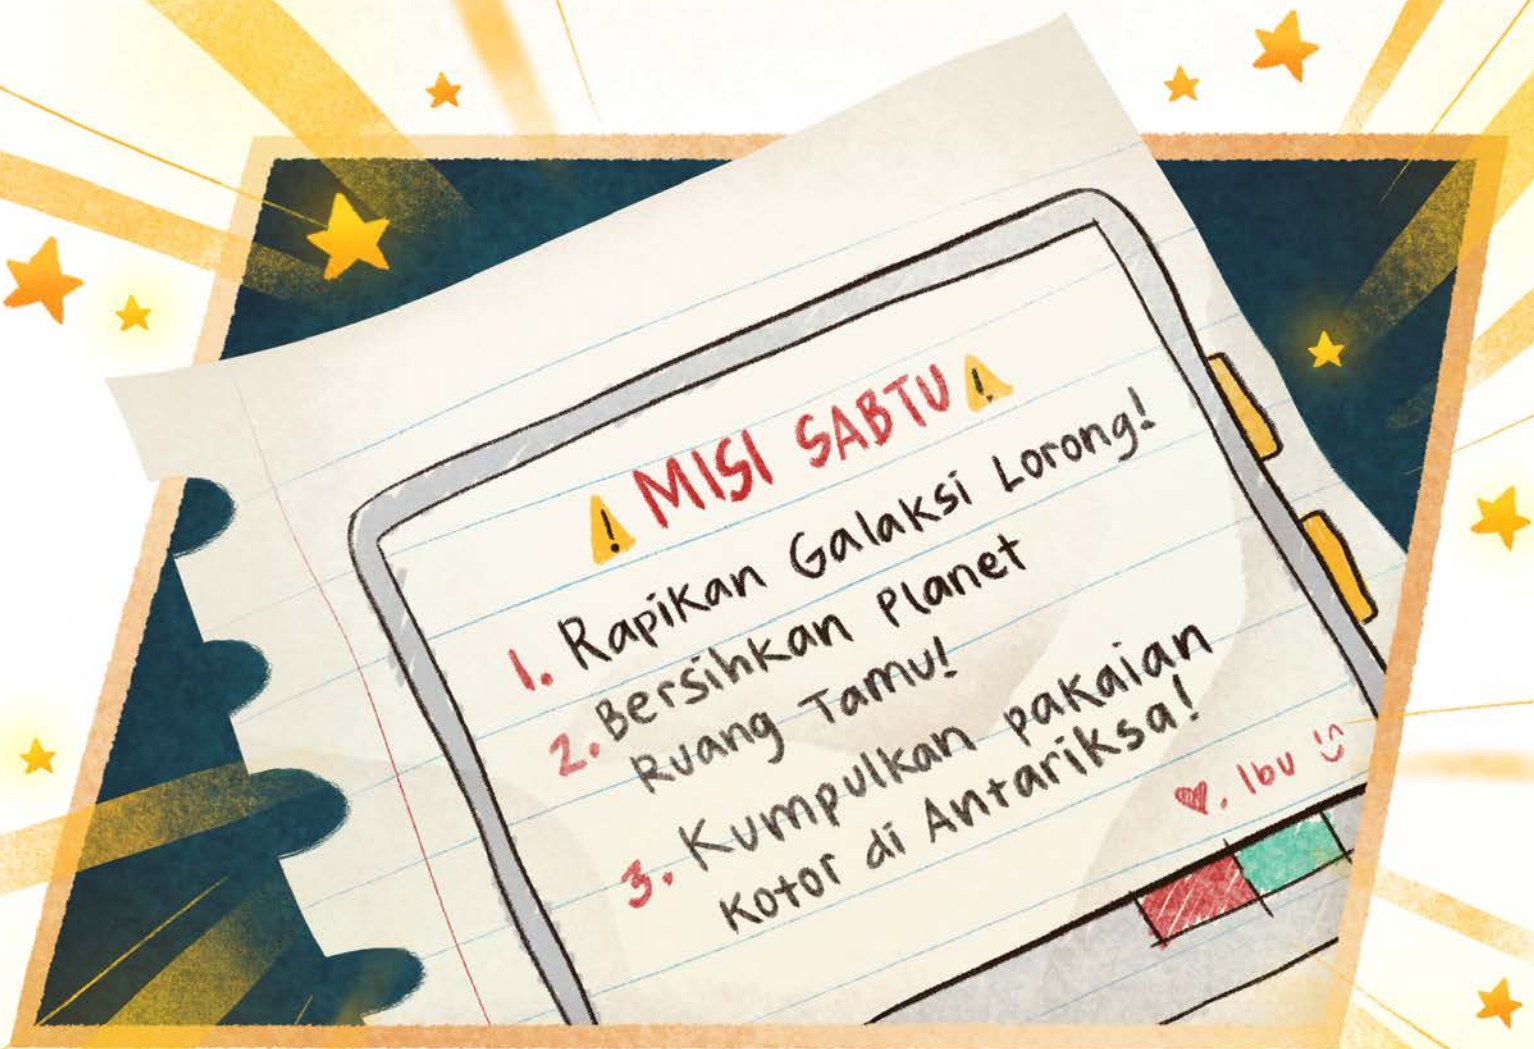 ! MISI SABTU !
1. Rapikan Galaksi Lorong!
2. Bersihkan Planet
Ruang Tamu!
3. Kumpulkan pakaian
Kotor di Antariksa!
♥. Ibu